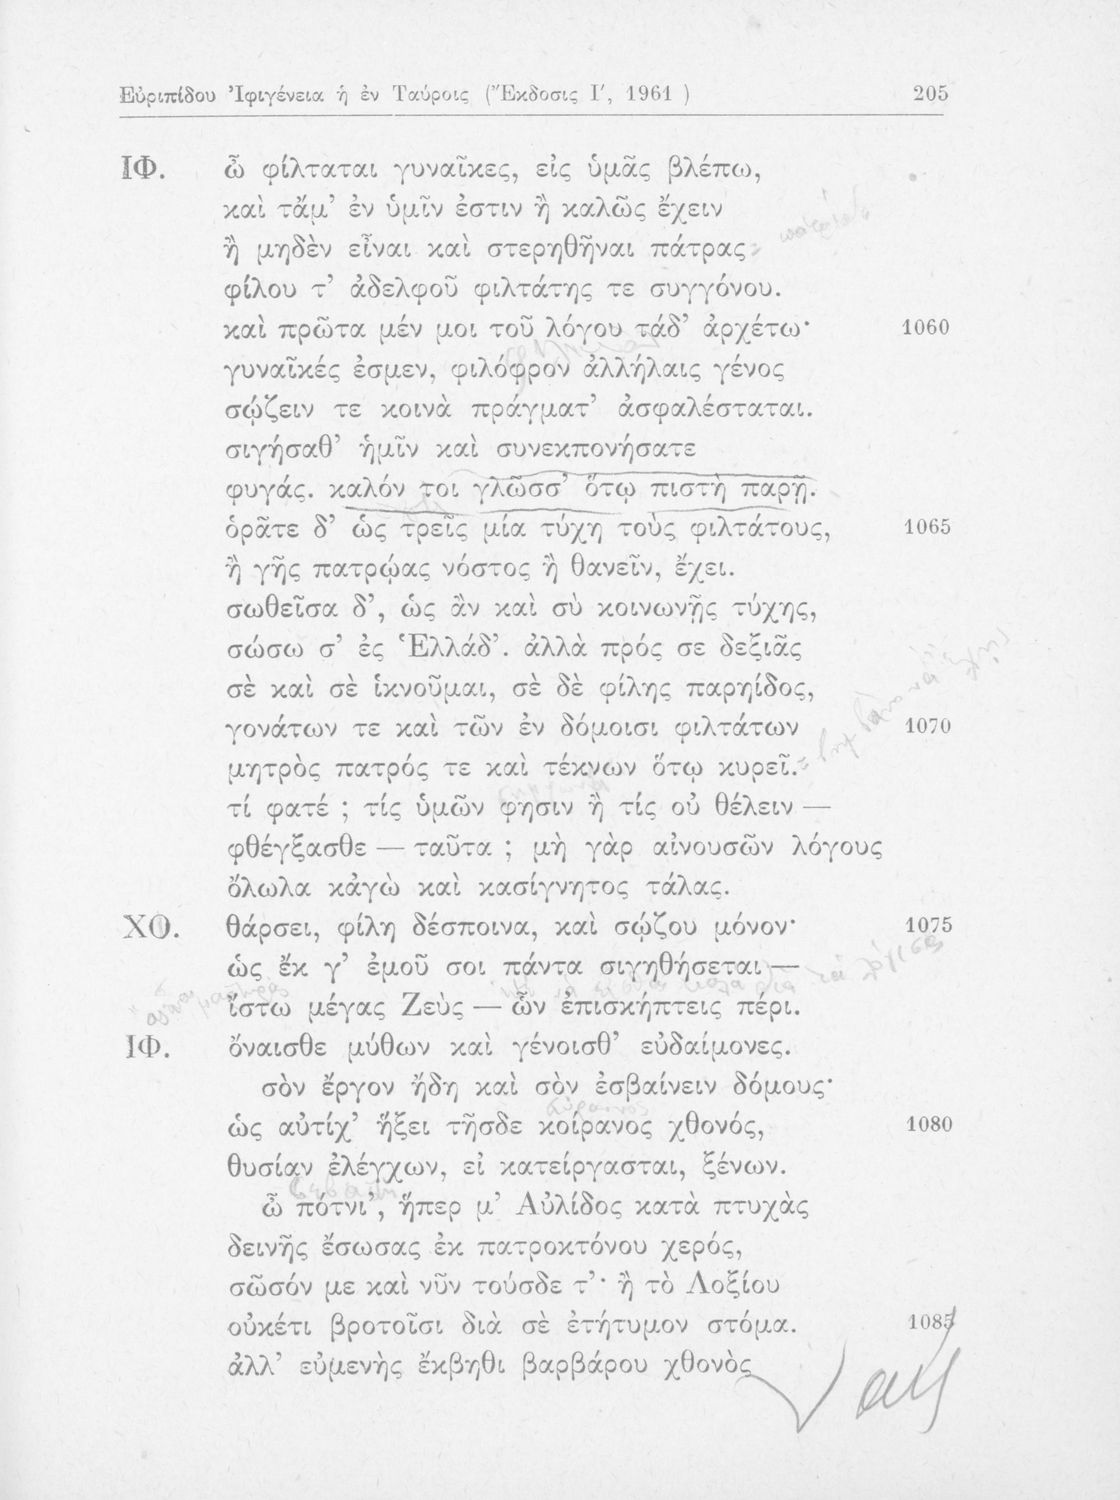 Εὐριπίδου Ἰφιγένεια ἡ ἐν Ταύροις (Ἔκδοσις Ι΄, 1961 ) 205
ΙΦ. ὦ φίλταται γυναῖκες, εἰς ὑμᾶς βλέπω,
καὶ τἄμ’ ἐν ὑμῖν ἐστιν ἢ καλῶς ἔχειν
ἢ μηδὲν εἶναι καὶ στερηθῆναι πάτρας
φίλου τ’ ἀδελφοῦ φιλτάτης τε συγγόνου.
καὶ πρῶτα μέν μοι τοῦ λόγου τάδ’ ἀρχέτω· 1060
γυναῖκές ἐσμεν, φιλόφρον ἀλλήλαις γένος
σῴζειν τε κοινὰ πράγματ’ ἀσφαλέσταται.
σιγήσαθ’ ἡμῖν καὶ συνεκπονήσατε
φυγάς. καλόν τοι γλῶσσ’ ὅτῳ πιστὴ παρῇ.
ὁρᾶτε δ’ ὡς τρεῖς μία τύχη τοὺς φιλτάτους, 1065
ἢ γῆς πατρῴας νόστος ἢ θανεῖν, ἔχει.
σωθεῖσα δ’, ὡς ἂν καὶ σὺ κοινωνῇς τύχης,
σώσω σ’ ἐς Ἑλλάδ’. ἀλλὰ πρός σε δεξιᾶς
σὲ καὶ σὲ ἱκνοῦμαι, σὲ δὲ φίλης παρηίδος,
γονάτων τε καὶ τῶν ἐν δόμοισι φιλτάτων 1070
μητρὸς πατρός τε καὶ τέκνων ὅτῳ κυρεῖ.
τί φατέ ; τίς ὑμῶν φησιν ἢ τίς οὐ θέλειν —
φθέγξασθε — ταῦτα ; μὴ γὰρ αἰνουσῶν λόγους
ὄλωλα κἀγὼ καὶ κασίγνητος τάλας.
ΧΟ. θάρσει, φίλη δέσποινα, καὶ σῴζου μόνον· 1075
ὡς ἔκ γ’ ἐμοῦ σοι πάντα σιγηθήσεται —
ἴστω μέγας Ζεὺς — ὧν ἐπισκήπτεις πέρι.
ΙΦ. ὄναισθε μύθων καὶ γένοισθ’ εὐδαίμονες.
σὸν ἔργον ἤδη καὶ σὸν ἐσβαίνειν δόμους·
ὡς αὐτίχ’ ἥξει τῆσδε κοίρανος χθονός, 1080
θυσίαν ἐλέγχων, εἰ κατείργασται, ξένων.
ὦ πότνι’, ἥπερ μ’ Αὐλίδος κατὰ πτυχὰς
δεινῆς ἔσωσας ἐκ πατροκτόνου χερός,
σῶσόν με καὶ νῦν τούσδε τ’· ἢ τὸ Λοξίου
οὐκέτι βροτοῖσι διὰ σὲ ἐτήτυμον στόμα. 1085
ἀλλ’ εὐμενὴς ἔκβηθι βαρβάρου χθονὸς